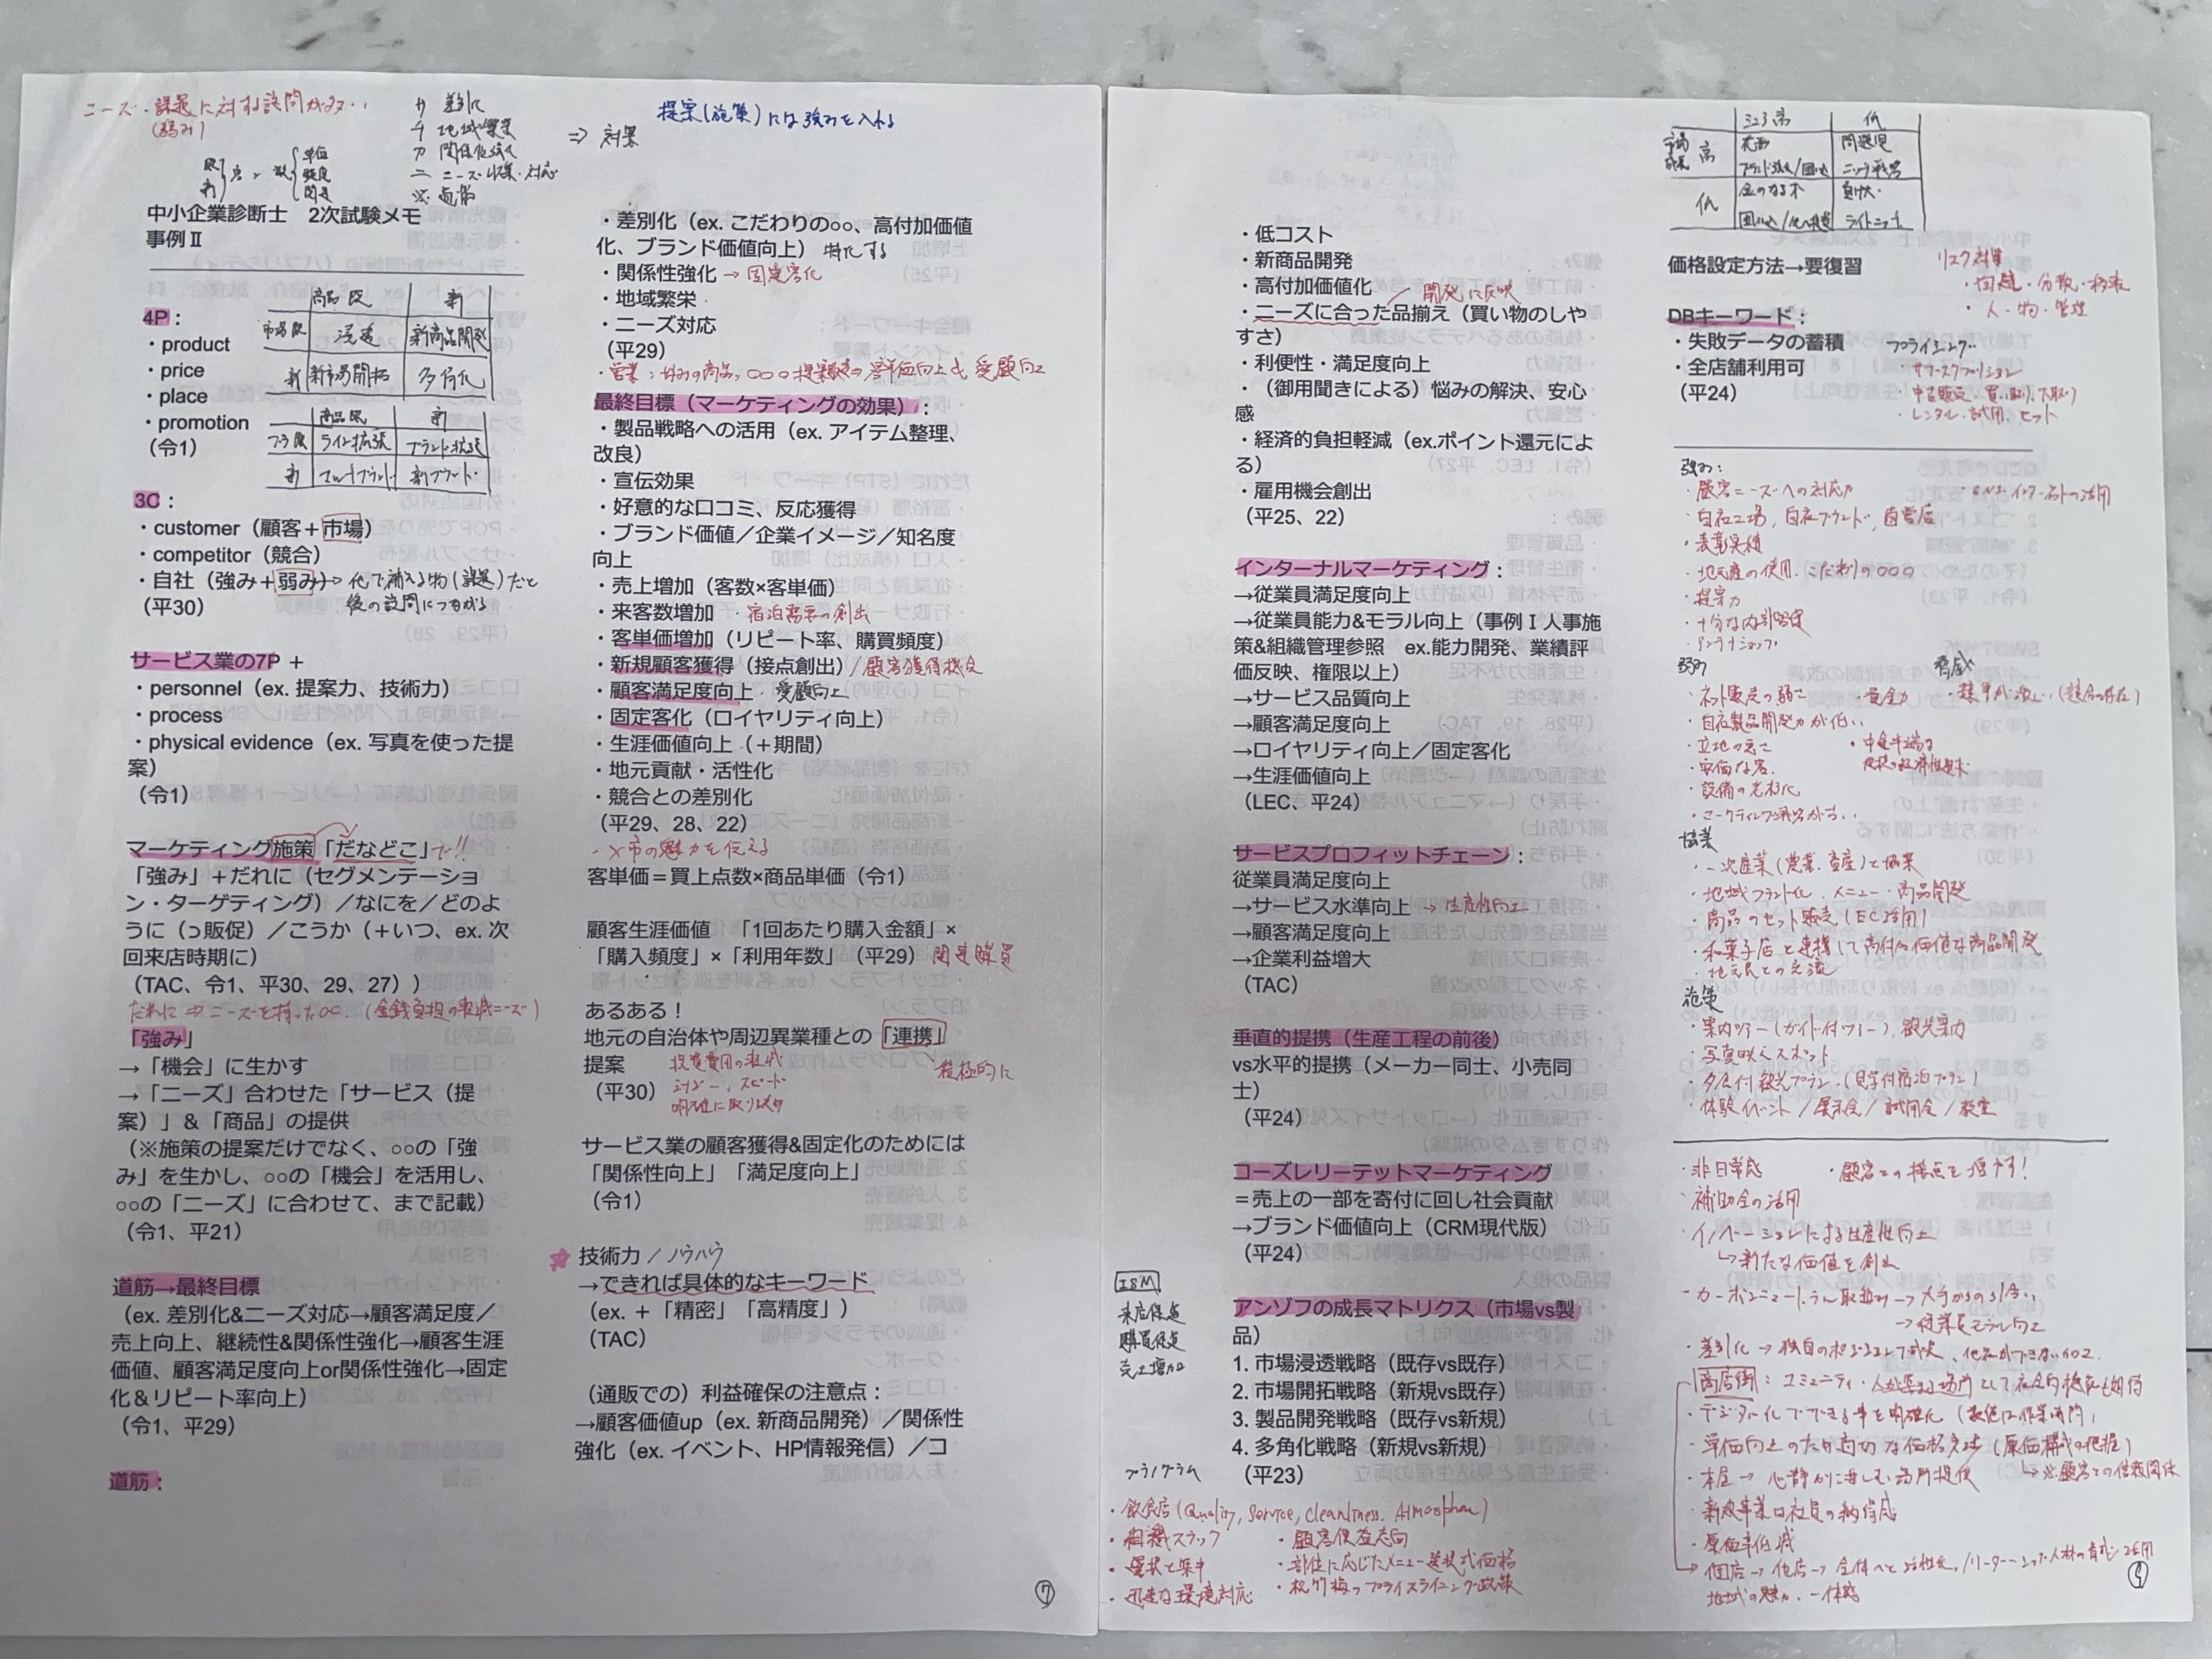 ニーズ・課題に対する設問が多い
(弱み)
サ 差別化
チ 地域繁栄
カ 関係性強化
ニ ニーズ収集・対応
⇒ 効果
提案(施策)には強みを入れる
既
新
客 × 数
単価
頻度
関連
中小企業診断士 2次試験メモ
事例Ⅱ
4P：
・product
・price
・place
・promotion
(令1)
商品 既 新
市場 既 浸透 新商品開発
新 新市場開拓 多角化
商品既 新
ブラ 既 ライン拡張 ブランド拡張
新 マルチブランド 新ブランド
3C：
・customer（顧客＋市場）
・competitor（競合）
・自社（強み＋弱み）→ 他で補える物(課題)だと
後の設問につながる
(平30)
サービス業の7P ＋
・personnel（ex. 提案力、技術力）
・process
・physical evidence（ex. 写真を使った提
案）
(令1)
マーケティング施策「だなどこ」で!!
「強み」＋だれに（セグメンテーショ
ン・ターゲティング）／なにを／どのよ
うに（⊃販促）／こうか（＋いつ、ex. 次
回来店時期に）
（TAC、令1、平30、29、27））
だれに ⇒ ニーズを持った○○ (金銭負担の軽減ニーズ)
「強み」
→「機会」に生かす
→「ニーズ」合わせた「サービス（提
案）」＆「商品」の提供
（※施策の提案だけでなく、○○の「強
み」を生かし、○○の「機会」を活用し、
○○の「ニーズ」に合わせて、まで記載）
（令1、平21）
道筋→最終目標
（ex. 差別化&ニーズ対応→顧客満足度／
売上向上、継続性&関係性強化→顧客生涯
価値、顧客満足度向上or関係性強化→固定
化＆リピート率向上）
（令1、平29）
道筋：
・差別化（ex. こだわりの○○、高付加価値
化、ブランド価値向上） 特化する
・関係性強化 → 固定客化
・地域繁栄
・ニーズ対応
(平29)
最終目標（マーケティングの効果）：
・製品戦略への活用（ex. アイテム整理、
改良）
・宣伝効果
・好意的な口コミ、反応獲得
・ブランド価値／企業イメージ／知名度
向上
・売上増加（客数×客単価）
・来客数増加 ・宿泊需要の創出
・客単価増加（リピート率、購買頻度）
・新規顧客獲得（接点創出）/ 顧客獲得機会
・顧客満足度向上 ・愛顧向上
・固定客化（ロイヤリティ向上）
・生涯価値向上（＋期間）
・地元貢献・活性化
・競合との差別化
（平29、28、22）
・X市の魅力を伝える
客単価＝買上点数×商品単価（令1）
顧客生涯価値 「1回あたり購入金額」×
「購入頻度」×「利用年数」（平29） 関連購買
あるある！
地元の自治体や周辺異業種との「連携」
提案
(平30)
投資費用の軽減
シナジー、スピード
積極的に
サービス業の顧客獲得&固定化のためには
「関係性向上」「満足度向上」
（令1）
☆ 技術力 / ノウハウ
→できれば具体的なキーワード
（ex.＋「精密」「高精度」）
（TAC）
（通販での）利益確保の注意点：
→顧客価値up（ex. 新商品開発）／関係性
強化（ex. イベント、HP情報発信）／コ
⑦
・低コスト
・新商品開発
・高付加価値化
開発に反映
・ニーズに合った品揃え（買い物のしや
すさ）
・利便性・満足度向上
・（御用聞きによる）悩みの解決、安心
感
・経済的負担軽減（ex.ポイント還元によ
る）
・雇用機会創出
（平25、22）
インターナルマーケティング：
→従業員満足度向上
→従業員能力&モラル向上（事例Ⅰ人事施
策&組織管理参照 ex.能力開発、業績評
価反映、権限以上）
→サービス品質向上
→顧客満足度向上
→ロイヤリティ向上／固定客化
→生涯価値向上
（LEC、平24）
サービスプロフィットチェーン：
従業員満足度向上
→サービス水準向上 → 生産性向上
→顧客満足度向上
→企業利益増大
（TAC）
垂直的提携（生産工程の前後）
vs水平的提携（メーカー同士、小売同
士）
（平24）
コーズレリーテットマーケティング
＝売上の一部を寄付に回し社会貢献
→ブランド価値向上（CRM現代版）
（平24）
ISM
来店促進
購買促進
売上増加
アンゾフの成長マトリクス（市場vs製
品）
1. 市場浸透戦略（既存vs既存）
2. 市場開拓戦略（新規vs既存）
3. 製品開発戦略（既存vs新規）
4. 多角化戦略（新規vs新規）
（平23）
プラノグラム
・飲食店(Quality, Service, Cleanliness. Atmosphere)
・組織スラック
・選択と集中
・迅速な環境対応
・顧客便益志向
・部位に応じたメニュー選択式価格
・松竹梅のプライスライニング政策
シェア高 低
市場成長 高 花形 問題児
ブランド強化/囲込 ニッチ戦略
低 金のなる木 負け犬
価格設定方法→要復習
リスク対策
・回避・分散・移転
・人・物・管理
DBキーワード：
・失敗データの蓄積
・全店舗利用可
（平24）
プライシング
・サブスクリプション
・中古販売・買い取り(下取り)
・レンタル・試用・セット
強み：
・顧客ニーズへの対応力
・SNS・インターネットの活用
・自社工場, 自社ブランド, 直営店
・表彰実績
・地元産の使用、こだわりの○○○
・提案力
・十分な内部留保
・アンテナショップ
弱み
脅威
・ネット販売の弱さ
・資金力
・競争が激しい(競合の存在)
・自社製品開発力が低い
・立地の悪さ
・安価な客
・設備の老朽化
・マーケティング戦略がない
協業
・一次産業(農業、畜産)と協業
・地域ブランド化、メニュー・商品開発
・商品のセット販売(EC活用)
・和菓子店と連携して高付加価値な商品開発
・地元民との交流
施策
・案内ツアー(ガイド付ツアー), 観光案内
・写真映えスポット
・夕食付観光プラン、(見学付宿泊プラン)
・体験イベント / 展示会 / 試用会 / 教室
・非日常感
・顧客との接点を増やす!
・補助金の活用
・イノベーションによる生産性向上
↳新たな価値を創出
・カーボンニュートラル取組み → 大手からの引合い
→従業員モラル向上
・差別化 → 独自のポジションで成長、他社ができない加工
・商店街：コミュニティ・人が集まる場所として社会的機能も期待
・デジタル化でできる事を明確化
・単価向上のため適切な価格交渉 (原価構成の把握)
↳※顧客との信頼関係
・本屋 → 心静かに楽しむ場所提供
・新規事業は社員の納得感
・原価率低減
・個店 → 他店 → 全体へと活性化 / リーターシップ人材の育成・活用
地域の魅力、一体感